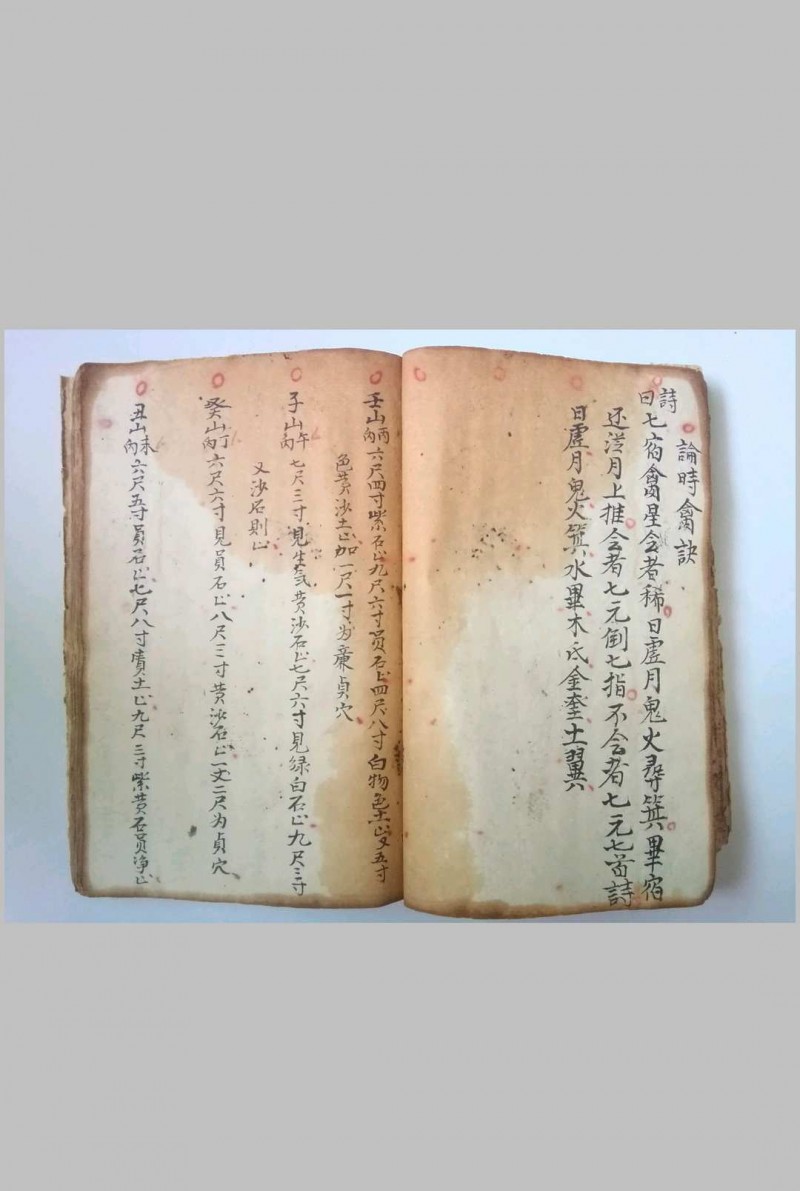 論時禽訣
詩曰七宿禽星会者稀日虛月鬼火尋箕畢宿
还從月上推会者七元倒七指不会者七元七首詩
日虛月鬼火箕水畢木氐金奎土翼
壬山丙向六尺四寸紫石止九尺六寸員石止四尺八寸白物色土止五寸
色黄沙土止加一尺一寸为廉貞穴
子山午向七尺三寸見生気黄沙石止七尺六寸見绿白石止九尺三寸
又沙石則止
癸山丁向六尺六寸見員石止八尺三寸黄沙石止一丈二尺为貞穴
丑山未向六尺五寸員石止七尺八寸責土止九尺三寸紫黄石員净止